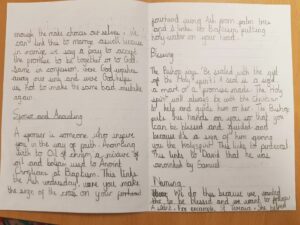 enough the make choices our selves. We
can link this to marry aswell because
in marry we say a pary to accept
the promise to be together or to God.
Same in confession were God washes
away our sins and were God helps
us not to make the same bad mistake
again.
Sponsor and Anointing
A sponsor is someone who inspire
you in the way of faith. Anointing
with to Oil of chrism a mixture of
oil and balsam used to Anoint
Christians at Baptism. This links
the Ash wednesday were you make
the sign of the cross on your forehead
forehead using Ash from palm tree
and it links to Baptism putting
holy water on your head.
Blessing
The Bishop says 'Be sealed with the gift
of the Holy spirit' A seal is a sign
a mark or a promise made. The 'Holy
spirit' will always be with the Christian
to help and guide him or her. The Bishop
puts his hands on you so that you
can be blessed and guided and
because its a sign of him giving
you the Holy spirit. This links to
This links to David that he was
anointed by Samuel
Naming
We do this because we wanted
the to be blessed and we want to follow
a saint. For example, St Teresa. She helped